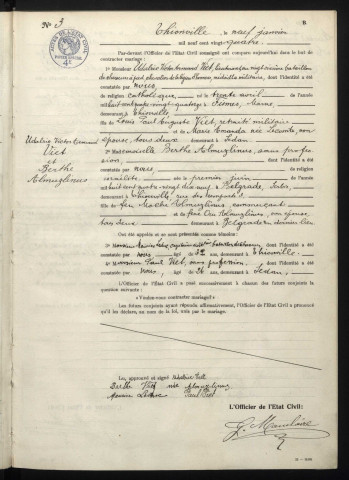 N° 3
Thionville, le neuf janvier
mil neuf cent vingt-quatre.
Par-devant l'Officier de l'Etat Civil ont comparu aujourd'hui dans le but de
contracter mariage:
1° Monsieur Adalric Victor Emmanuel Viet, lieutenant au
de chasseurs à pied, chevalier de la légion d'honneur, médaille militaire, dont l'identité a été
constatée par notes,
de religion catholique, né le trente avril de l'année
mil huit cent quatre-vingt-quatorze à Marne,
demeurant à Thionville
fils de Louis Paul Auguste Viet, retraité militaire
et de Marie née Lecomte, son
épouse, tous deux demeurant à Sedan
2° Mademoiselle Berthe Almuzlinus, sans profes-
sion, dont l'identité a été
constatée par notes
de religion israélite, née le premier juin de l'année
mil huit cent quatre-vingt dix neuf à Belgrade,
demeurant à Thionville, rue des remparts
fille de feu Almuzlinus, commerçant
et de feue Almuzlinus, son épouse,
tous deux demeurant à Belgrade en dernier lieu
Ont été appelés et se sont présentés comme témoins:
dont l'identité a été
constatée par notes, âgé de ans, demeurant à Thionville.
4° monsieur Paul Viet, sans profession, dont l'identité a été
constatée par notes, âgé de ans, demeurant à Sedan,
L'Officier de l'Etat Civil a posé successivement à chacun des futurs conjoints la
question suivante:
«Voulez-vous contracter mariage?»
Les futurs conjoints ayant répondu affirmativement, l'Officier de l'Etat Civil a prononcé
qu'il les déclare, au nom de la loi, unis par le mariage.
Adalric Victor Emmanuel
Viet
et
Berthe
Almuzlinus
Lu, approuvé et signé Adalric Viet
Berthe Viet née Almuzlinus
Paul Viet
L'Officier de l'Etat Civil: